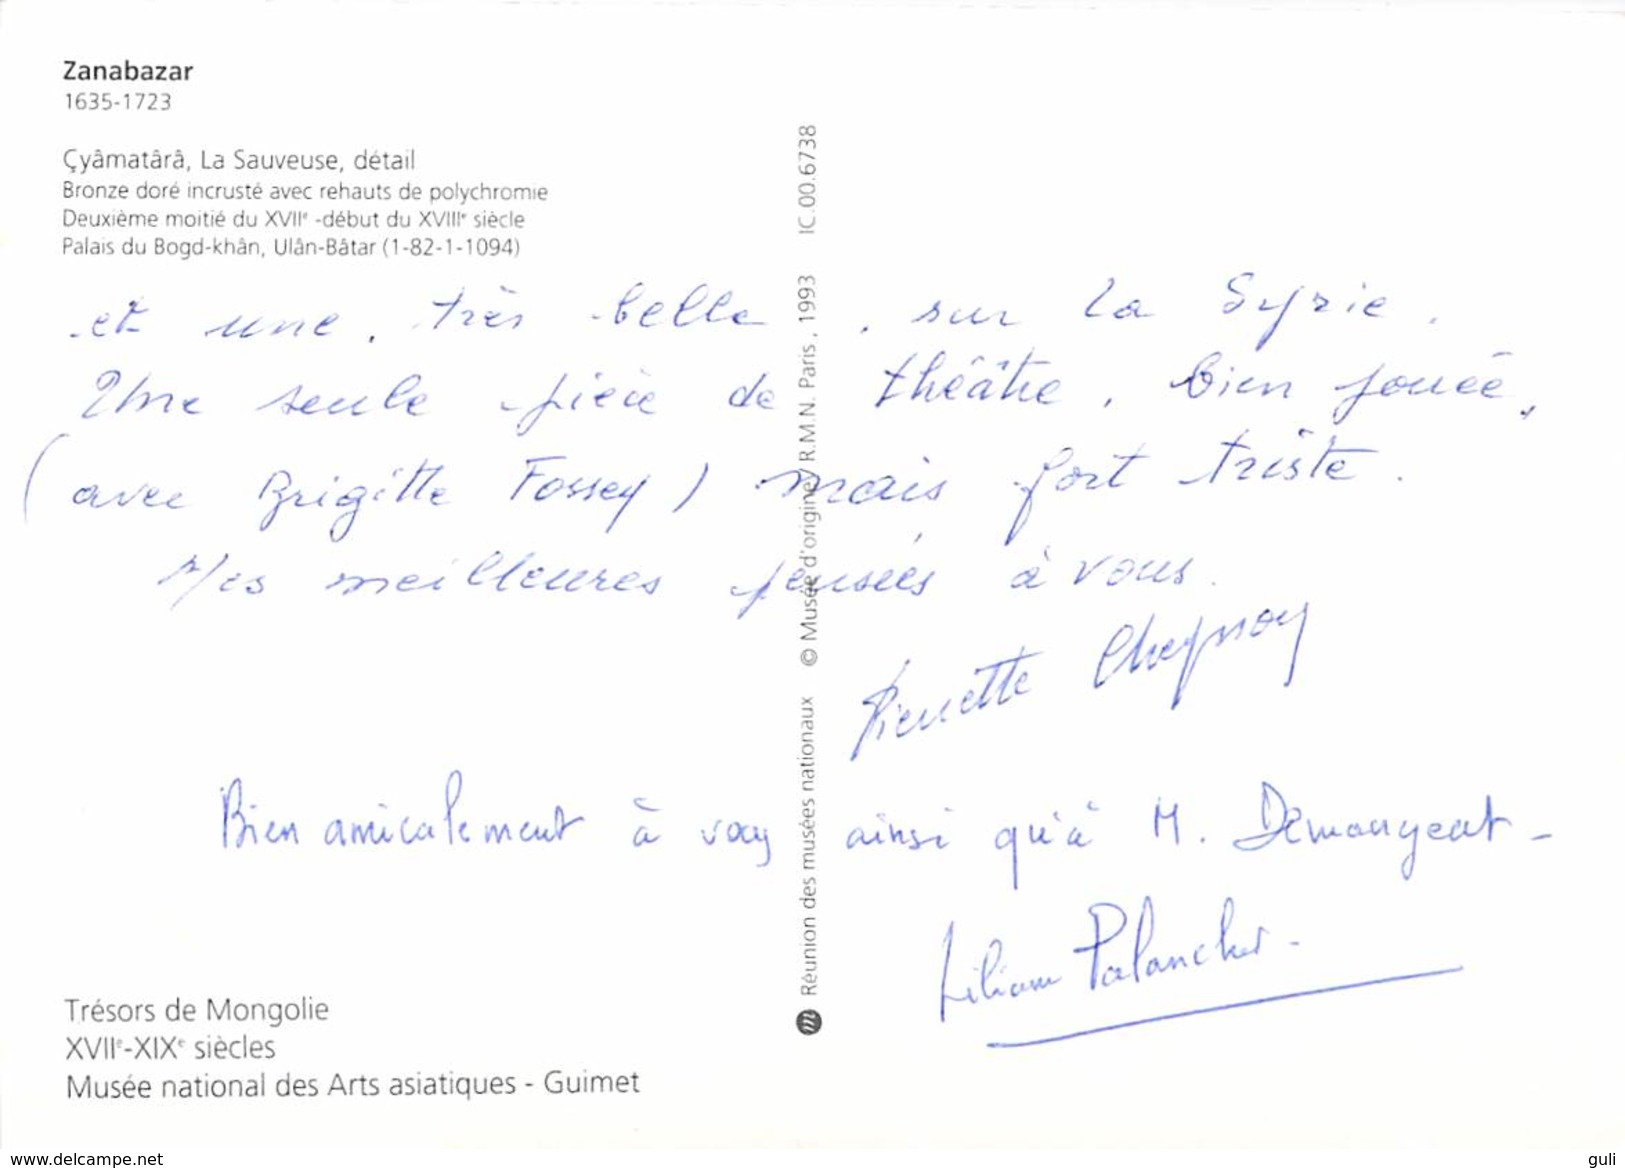 Zanabazar
1635-1723
Çyâmatârâ, La Sauveuse, détail
Bronze doré incrusté avec rehauts de polychromie
Deuxième moitié du XVIIe -début du XVIIIe siècle
Palais du Bogd-khân, Ulân-Bâtar (1-82-1-1094)
et une, très belle, sur la Syrie.
Une seule pièce de théâtre, bien jouée,
(avec Brigitte Fossey) mais fort triste.
Mes meilleures pensées à vous.
Pierrette
Bien amicalement à vous ainsi qu'à M. Demangeat -
Liliane
Trésors de Mongolie
XVIIe-XIXe siècles
Musée national des Arts asiatiques - Guimet
Réunion des musées nationaux © Musée d'origine / R.M.N. Paris, 1993 IC.00.6738
www.delcampe.net
guli